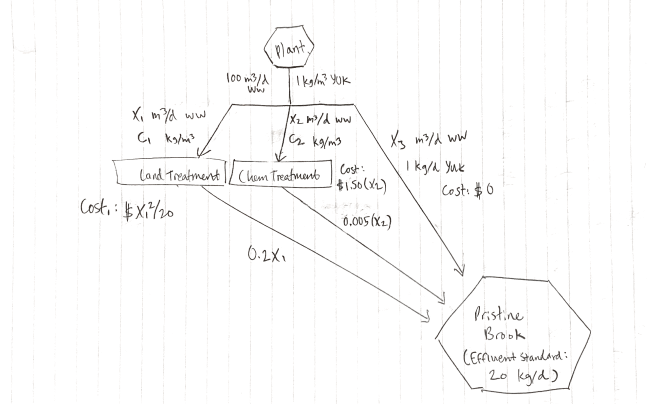 Plant
100 m³/d
ww
1 kg/m³ YUK
X₁ m³/d ww
C₁ kg/m³
X₂ m³/d ww
C₂ kg/m³
X₃ m³/d ww
1 kg/d YUK
Cost: $0
Land Treatment
Chem Treatment
Cost:
$1.50(X₂)
Cost₁: $X₁²/20
0.005(X₂)
0.2X₁
Pristine
Brook
(Effluent standard:
20 kg/d)